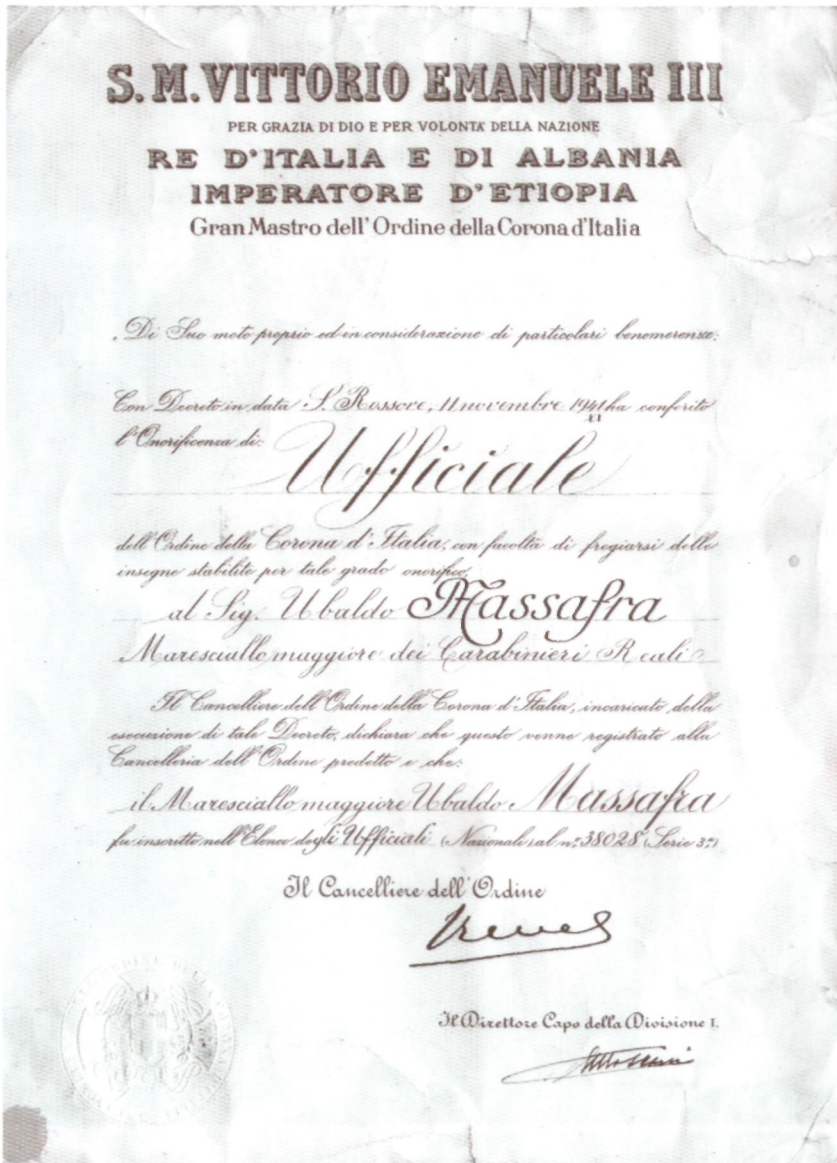 S. M. VITTORIO EMANUELE III
PER GRAZIA DI DIO E PER VOLONTÀ DELLA NAZIONE
RE D'ITALIA E DI ALBANIA
IMPERATORE D'ETIOPIA
Gran Mastro dell'Ordine della Corona d'Italia
Di Suo moto proprio ed in considerazione di particolari benemerenze:
Con Decreto in data S. Rossore, 11 novembre 1941 ha conferito
l'Onorificenza di:
Ufficiale
dell'Ordine della Corona d'Italia, con facoltà di fregiarsi delle
insegne stabilite per tale grado onorifico,
al Sig. Ubaldo Massafra
Maresciallo maggiore dei Carabinieri Reali
Il Cancelliere dell'Ordine della Corona d'Italia, incaricato della
esecuzione di tale Decreto, dichiara che questo venne registrato alla
Cancelleria dell'Ordine predetto e che:
il Maresciallo maggiore Ubaldo Massafra
fu inscritto nell'Elenco degli Ufficiali (Nazionali) al n.° 38028 (Serie 3ª)
Il Cancelliere dell'Ordine
Il Direttore Capo della Divisione I.